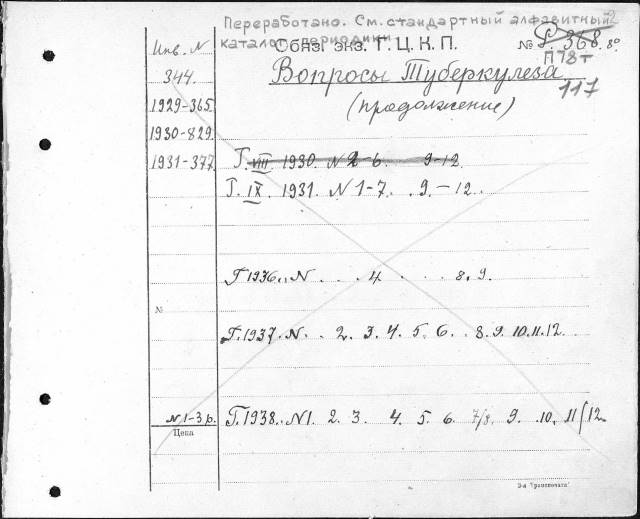 Переработано. См. стандартный алфавитный
каталог периодики
Инв. N Обяз. экз. Г. Ц. К. П. № Р. 368. 8°
П 78т
344. Вопросы Туберкулеза 117
1929-365. (продолжение)
1930-829.
1931-377. Г. VIII. 1930. N 2-6. 9-12
Г. IX. 1931. N 1-7. . 9. - 12.
Г 1936. . N . . . 4 . . . 8. 9.
№
Г. 1937. N. . 2. 3. 4. 5. 6. . 8. 9. 10. 11. 12.
N 1-3 р. Г. 1938. . N1. 2. 3. 4. 5. 6. 7/8. 9. . 10. 11/12.
Цена